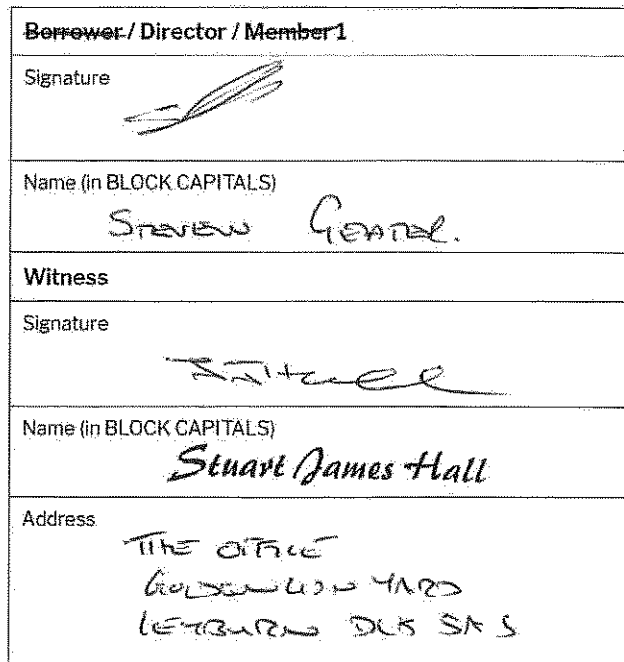 Borrower / Director / Member 1
Signature
Name (in BLOCK CAPITALS)
STEVEN GEATER.
Witness
Signature
Name (in BLOCK CAPITALS)
Stuart James Hall
Address
THE OFFICE
GOLDEN LION YARD
LEYBURN DL8 5AS